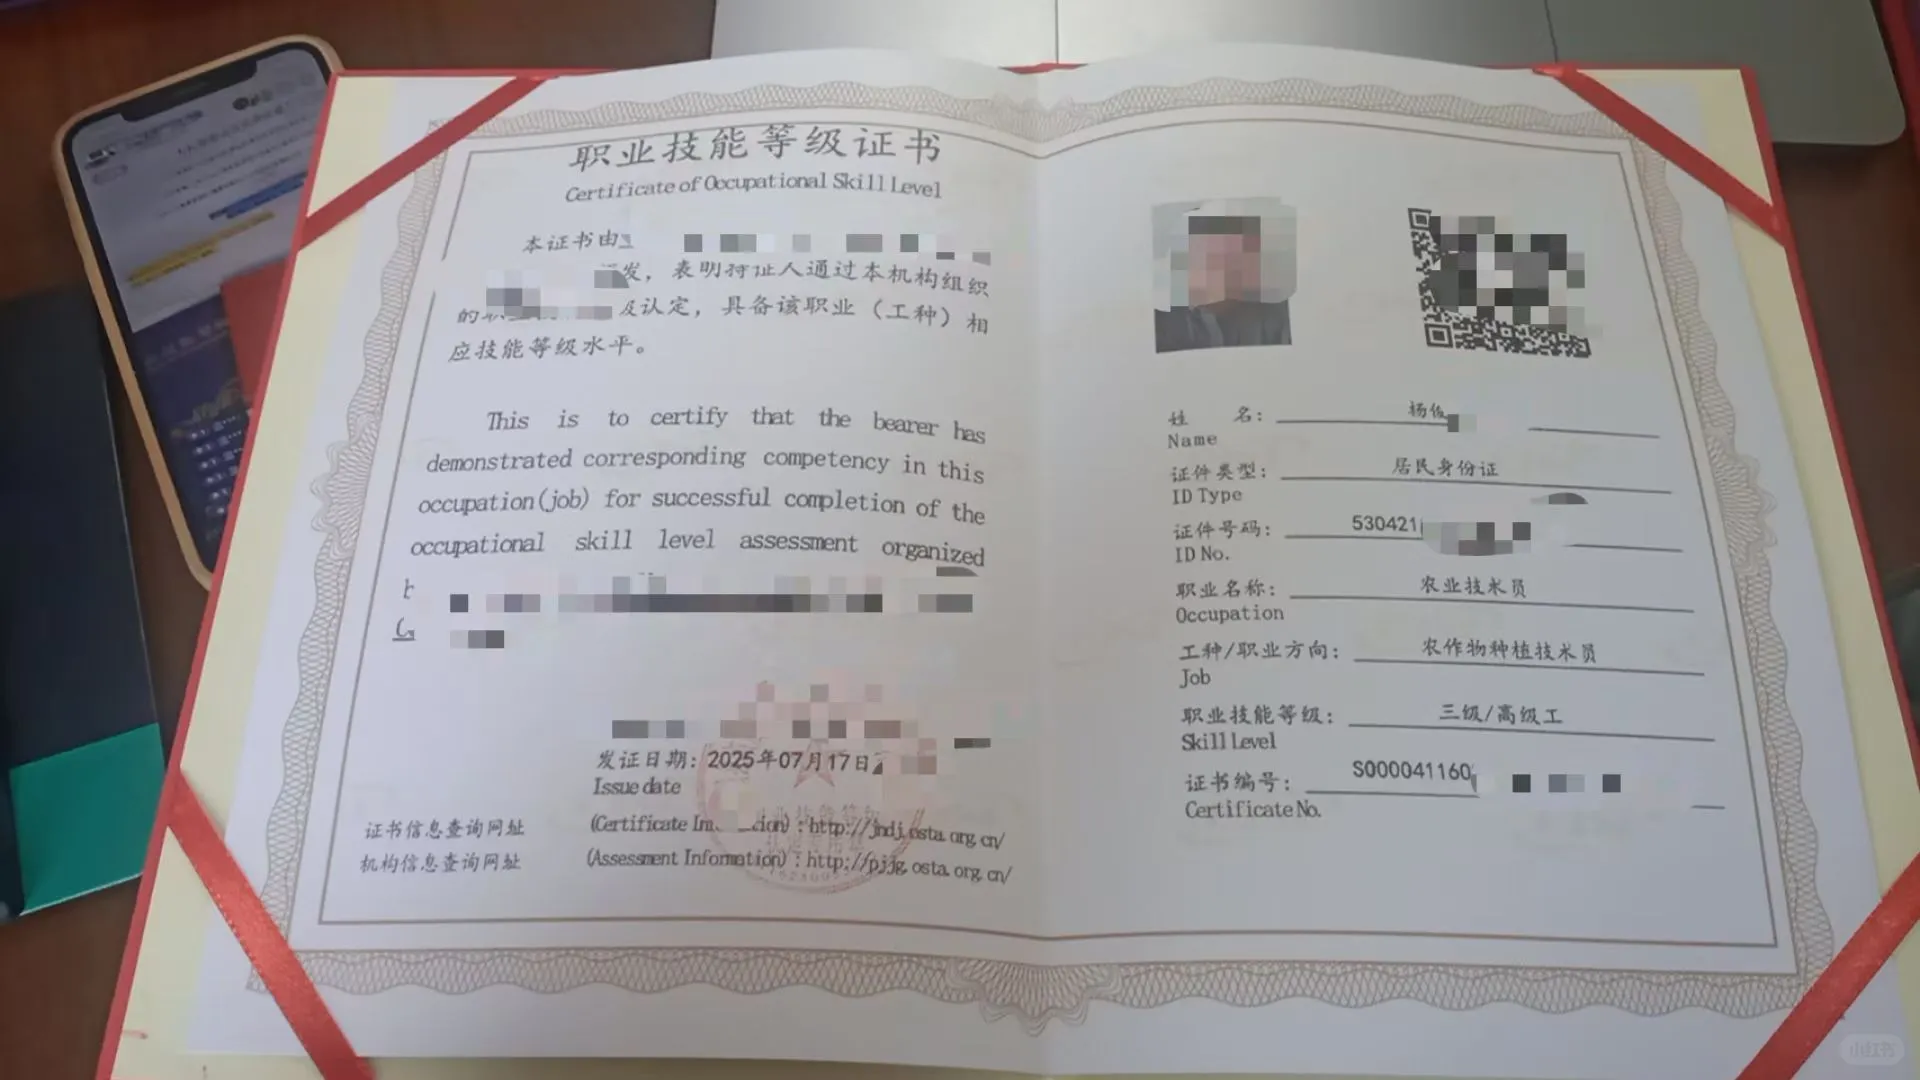 职业技能等级证书
Certificate of Occupational Skill Level
本证书由
发，表明持证人通过本机构组织
的职 及认定，具备该职业（工种）相
应技能等级水平。
This is to certify that the bearer has
demonstrated corresponding competency in this
occupation(job) for successful completion of the
occupational skill level assessment organized
发证日期：2025年07月17日
Issue date
证书信息查询网址 (Certificate : http://jndj.osta.org.cn/
机构信息查询网址 (Assessment Information) : http://pjjg.osta.org.cn/
姓 名： 杨俊
Name
证件类型： 居民身份证
ID Type
证件号码： 530421
ID No.
职业名称： 农业技术员
Occupation
工种/职业方向： 农作物种植技术员
Job
职业技能等级： 三级/高级工
Skill Level
证书编号： S000041160
Certificate No.
小红书